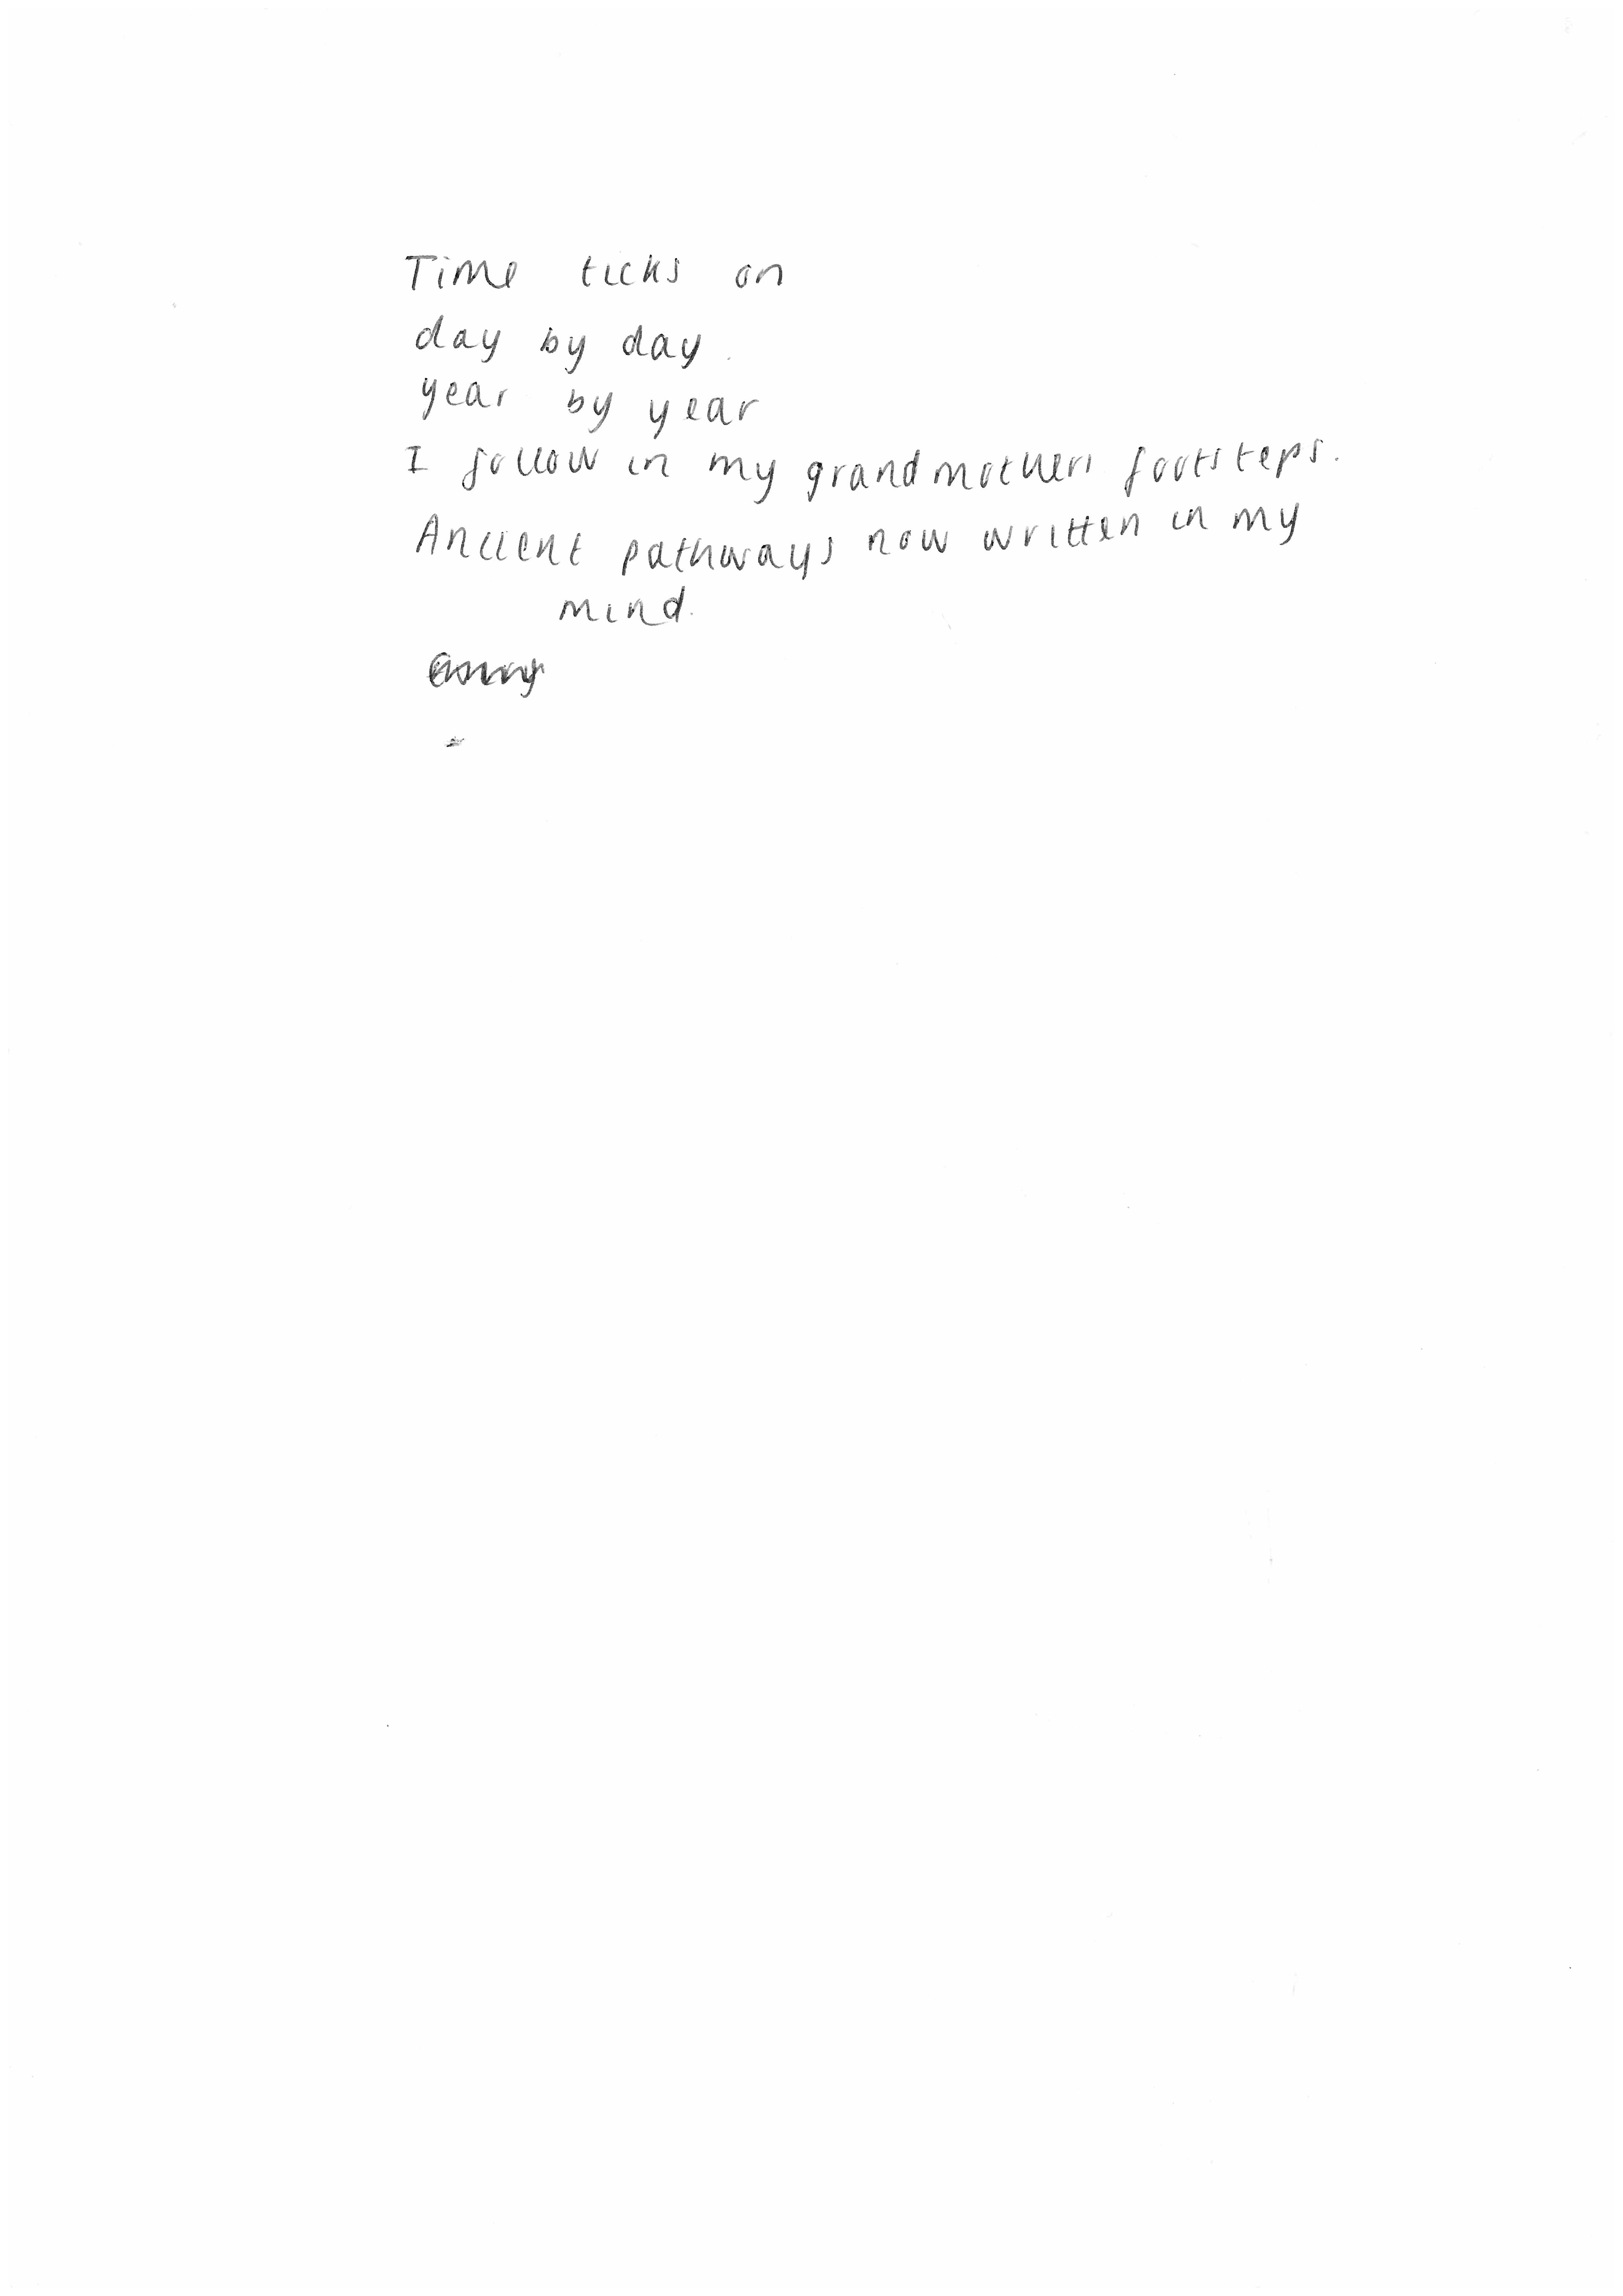 Time ticks on
day by day.
year by year
I follow in my grandmothers footsteps.
Ancient pathways now written in my
mind.